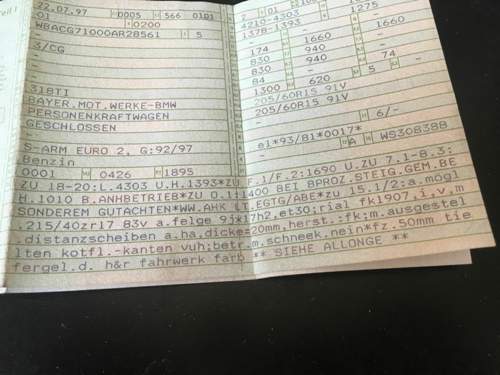 22.07.97 0005 566 0101
0200
WBACG71000AR28561 5
-
3/CG
-
-
-
318TI
BAYER.MOT.WERKE-BMW
PERSONENKRAFTWAGEN
GESCHLOSSEN
S-ARM EURO 2, G:92/97
Benzin
0001 0426 1895
2 01
4210-4303 1275
1378-1393
174 1660 1660
830 940 -
830 940 -
84 - 74
1300 620 5 -
205/60R15 91V
205/60R15 91V
-
- 6/-
e1*93/81*0017*
A WS308388
ZU 18-20:L.4303 U.H.1393*ZU F.1/F.2:1690 U.ZU 7.1-8.3:
H.1010 B.ANHBETRIEB*ZU 0.1:1400 BEI 8PROZ.STEIG.GEM.BE
SONDEREM GUTACHTEN*WW.AHK LT.EGTG/ABE*zu 15.1/2:a.mögl
.215/40zr17 83v a.felge 9jx17h2,et30;rial fk1907,i.v.m
.distanzscheiben a.ha.dicke=20mm,herst.:fk:m.ausgestel
lten kotfl.-kanten vuh:betr.m.schneek.nein*fz.50mm tie
fergel.d. h&r fahrwerk farb ** SIEHE ALLONGE **